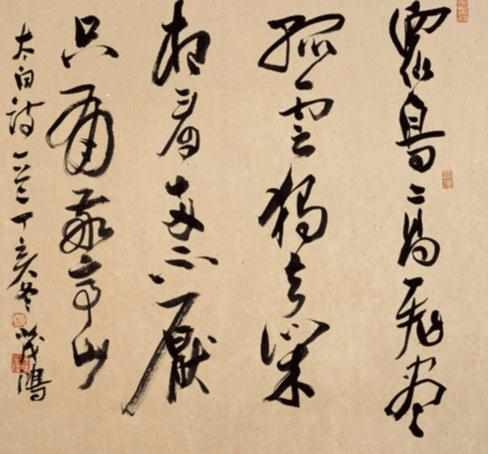 眾鳥高飛盡
孤雲獨去閑
相看兩不厭
只有敬亭山
太白詩一首丁亥冬